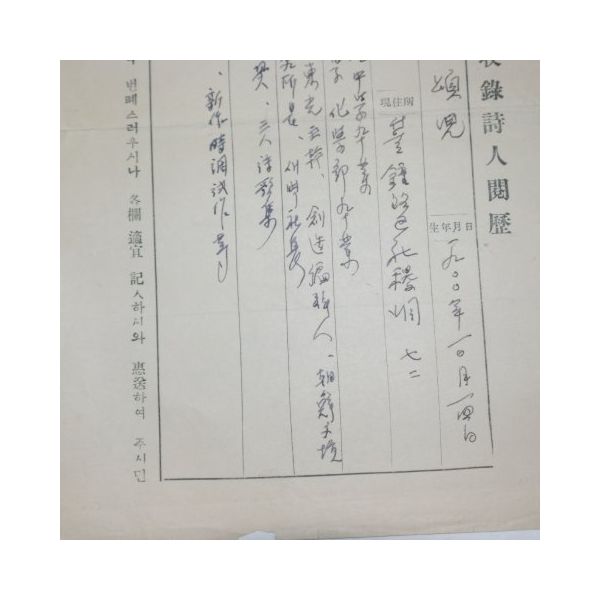 錄詩人閱歷
頌兒
生年月日
一九〇〇年一〇月一四日
現住所
서울 鍾路區社稷洞 七二
中學卒業
化學部卒業
東光主幹、創造編輯人、朝鮮文壇
三人詩歌集
新作時調試作 等
번폐스러우시나 各欄 適宜 記入하시와 惠送하여 주시면